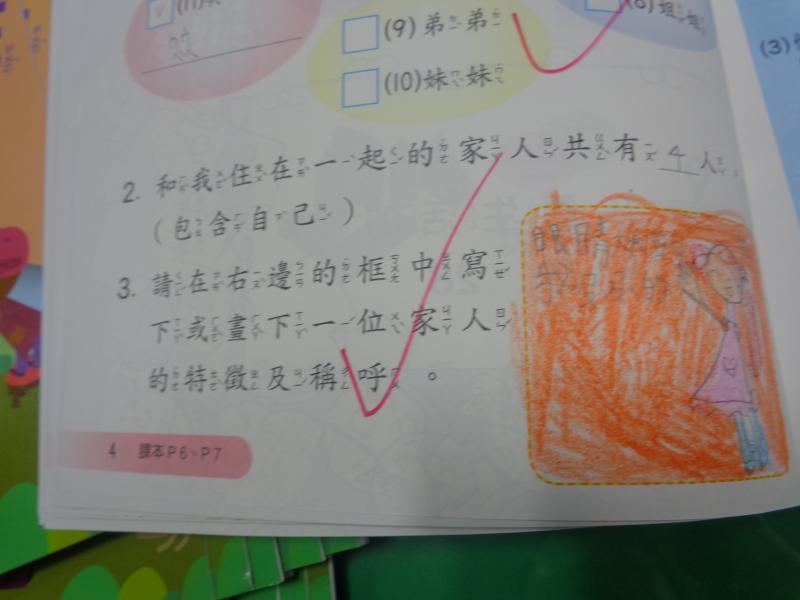 (9)弟弟
(10)妹妹
2. 和我住在一起的家人共有 人。
(包含自己)
3. 請在右邊的框中寫
下或畫下一位家人
的特徵及稱呼。
眼睛
4 課本P6、P7